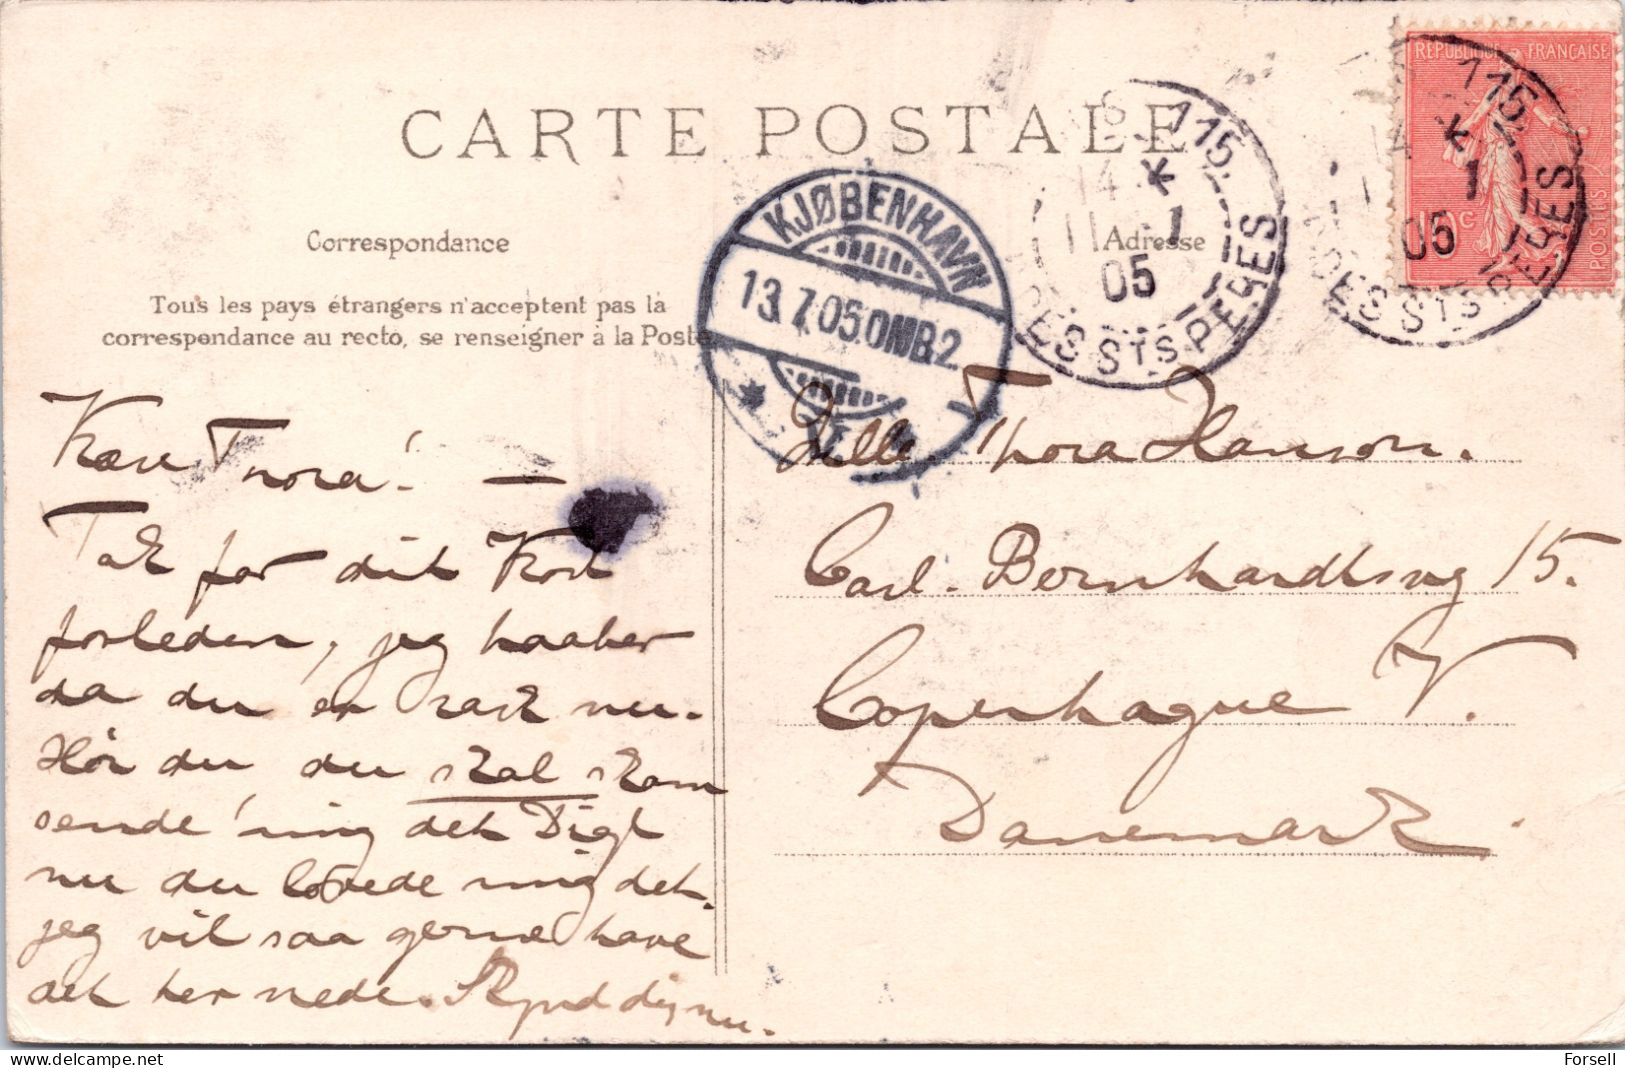 CARTE POSTALE
Correspondance
Tous les pays étrangers n'acceptent pas la
correspondance au recto, se renseigner à la Poste
Adresse
RÉPUBLIQUE FRANÇAISE
10c
POSTES
115
11 - 1
05
RUE DES STS PERES
115
1
05
DES STS PERES
KJØBENHAVN
13.7.05.OMB.2
Kære Thora! —
Tak for dit Kort
forleden, jeg haaber
da du er rask nu.
Hør du, du skal skam
sende mig det Digt
nu du lovede mig det.
jeg vil saa gerne have
det her nede. Skynd dig nu.
Thora Hanson.
Carl-Bernhardtsvej 15.
Copenhague V.
Danemark.
Forsell